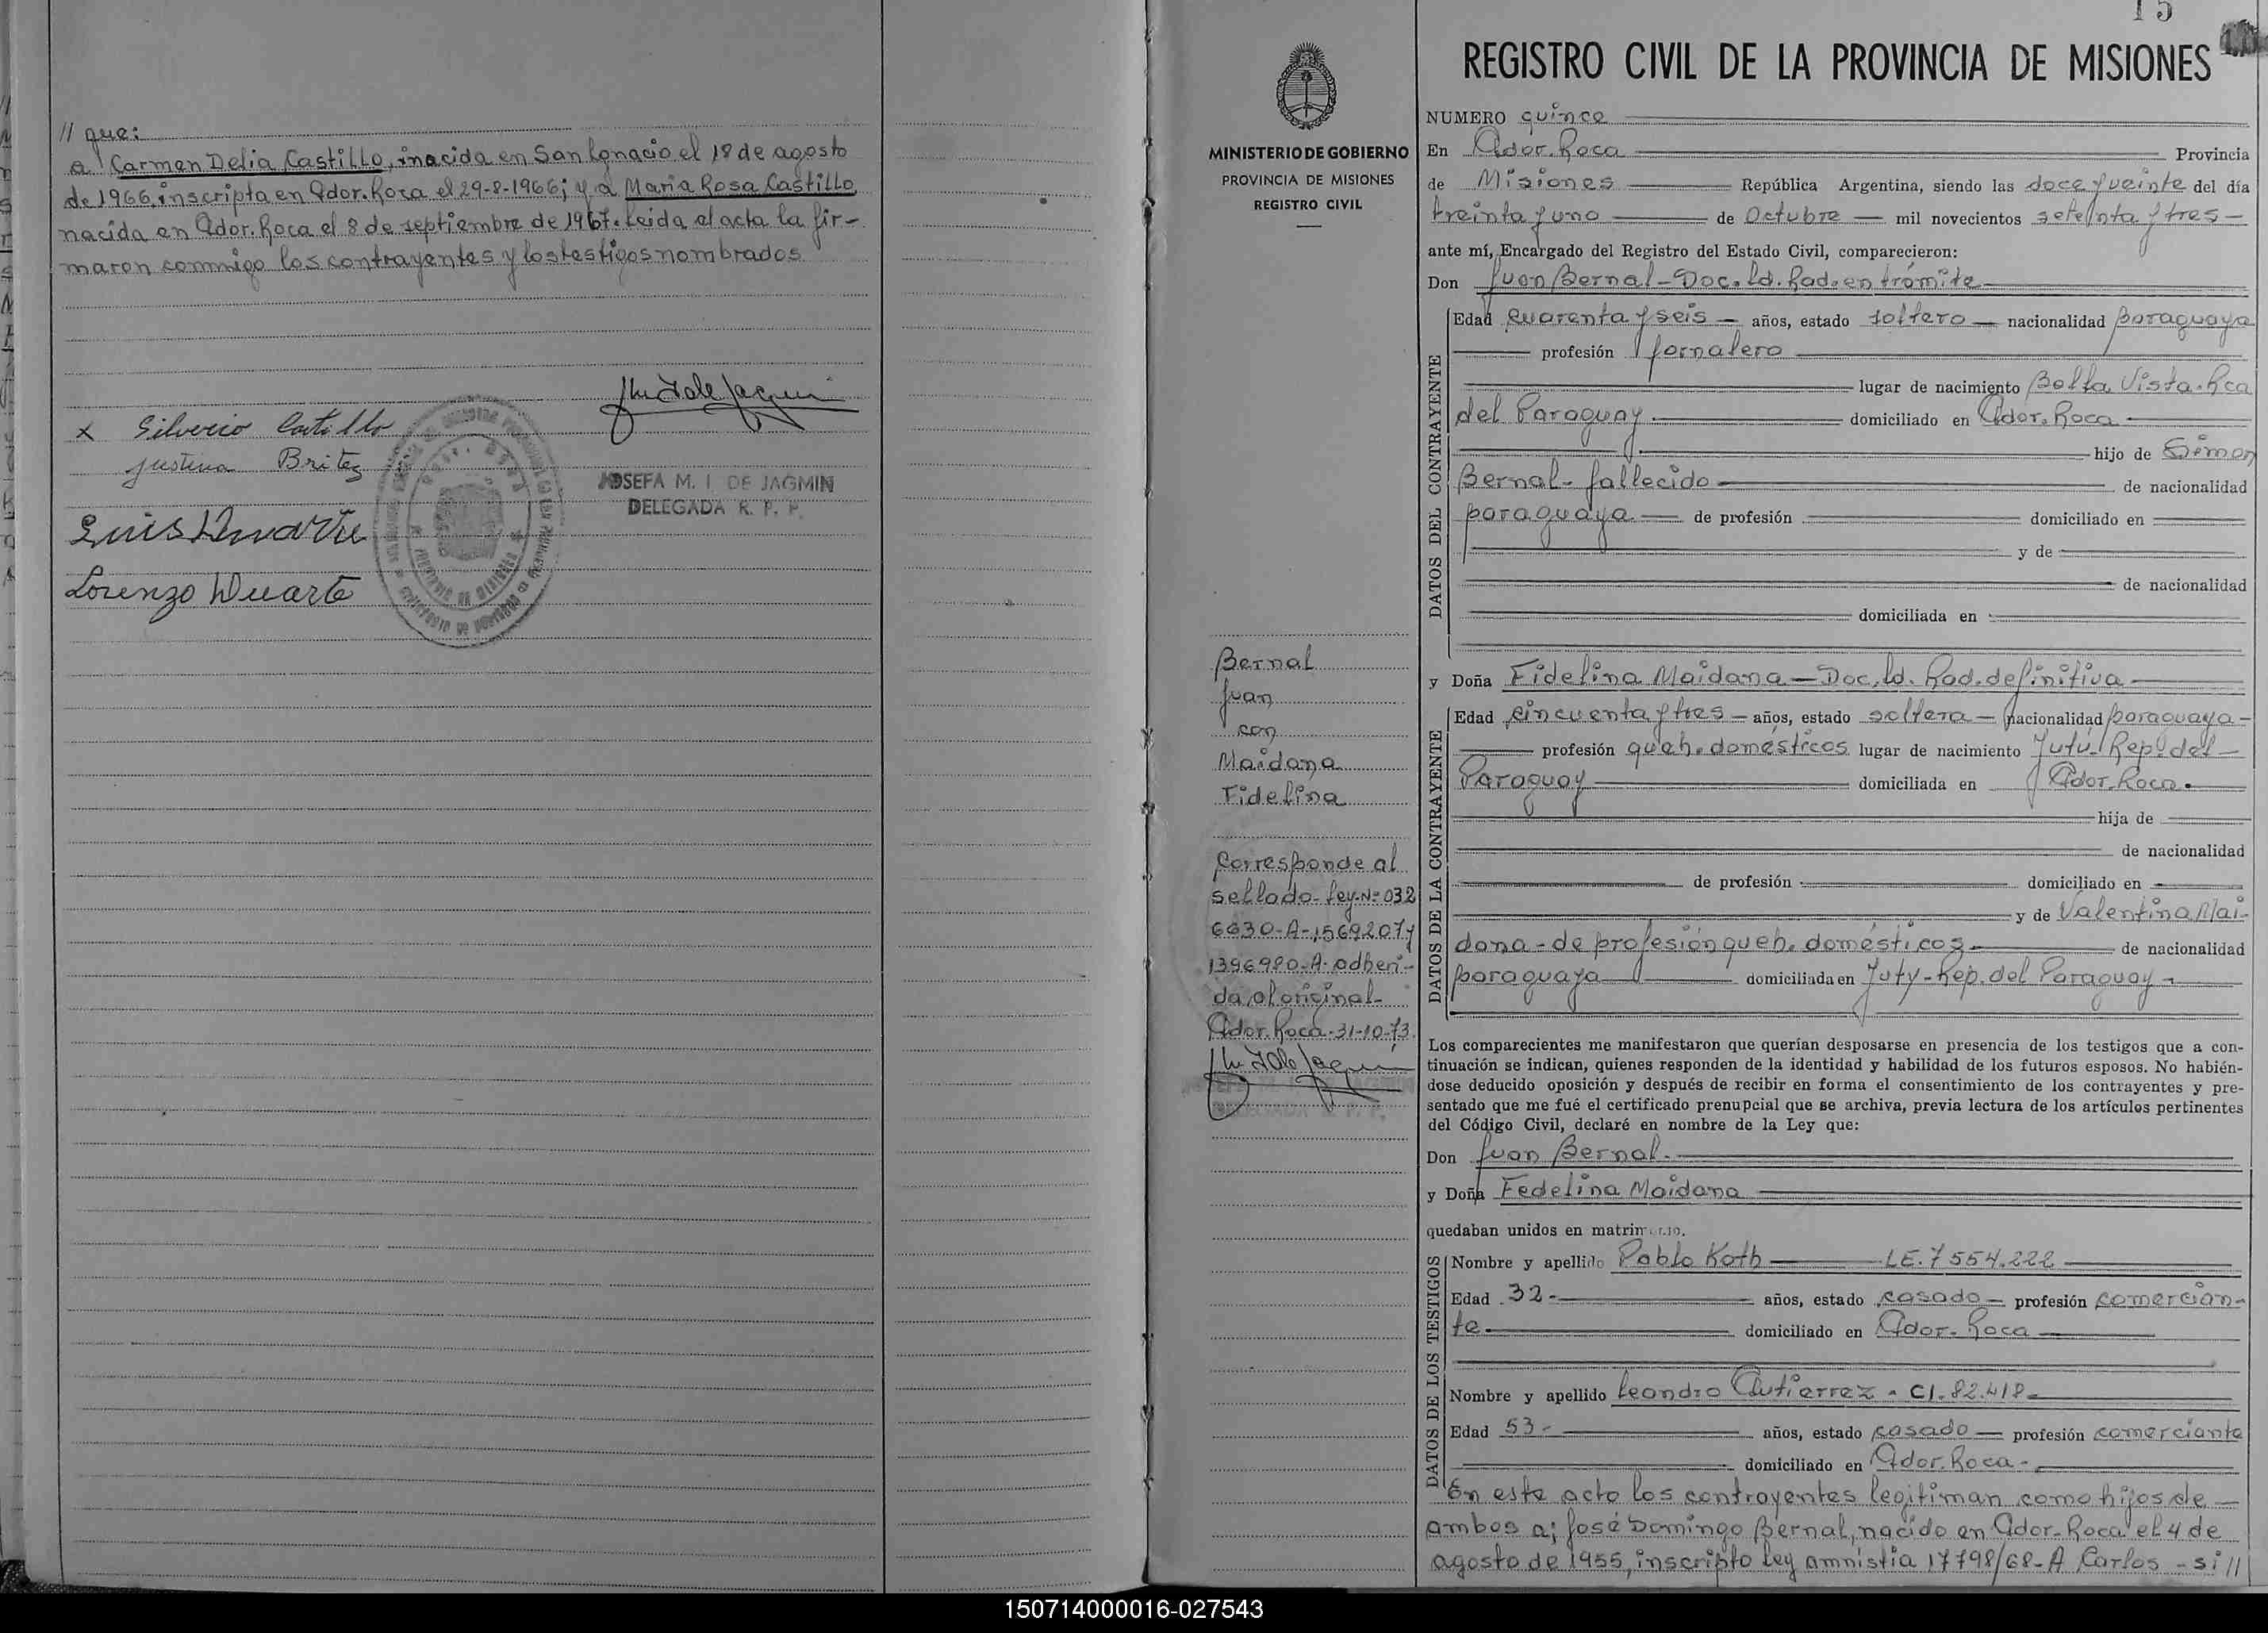 // que:
a Carmen Delia Castillo, nacida en San Ignacio el 18 de agosto
de 1966, inscripta en Gdor. Roca el 29-8-1966; y a Maria Rosa Castillo
nacida en Gdor. Roca el 8 de septiembre de 1967. Leida el acta la fir-
maron conmigo los contrayentes y los testigos nombrados
x Silverio Castillo
Justina Britez
JOSEFA M. I. DE JAGMIN
DELEGADA R. P. P.
Luis Duarte
Lorenzo Duarte
MINISTERIO DE GOBIERNO
PROVINCIA DE MISIONES
REGISTRO CIVIL
Bernal
Juan
con
Maidana
Fidelina
Corresponde al
sellado-ley-Nº 032
6630-A-1569207 y
1396980-A-adheri-
da al original-
Gdor. Roca-31-10-73
15
REGISTRO CIVIL DE LA PROVINCIA DE MISIONES
NUMERO quince
En Gdor. Roca Provincia
de Misiones República Argentina, siendo las doce y veinte del día
treinta y uno de Octubre mil novecientos setenta y tres
ante mí, Encargado del Registro del Estado Civil, comparecieron:
Don Juan Bernal-Doc. Id. Rad. en trámite
DATOS DEL CONTRAYENTE
Edad cuarenta y seis años, estado soltero nacionalidad paraguaya
profesión jornalero
lugar de nacimiento Bella Vista-Rca
del Paraguay domiciliado en Gdor. Roca
hijo de Simon
Bernal-fallecido de nacionalidad
paraguaya de profesión domiciliado en
y de
de nacionalidad
domiciliada en
y Doña Fidelina Maidana-Doc. Id. Rad. definitiva
DATOS DE LA CONTRAYENTE
Edad cincuenta y tres años, estado soltera nacionalidad paraguaya
profesión queh. domésticos lugar de nacimiento Yuty-Rep. del
Paraguay domiciliada en Gdor. Roca.
hija de
de nacionalidad
de profesión domiciliado en
y de Valentina Mai-
dana-de profesión queh. domésticos de nacionalidad
paraguaya domiciliada en Yuty-Rep. del Paraguay
Los comparecientes me manifestaron que querían desposarse en presencia de los testigos que a con-
tinuación se indican, quienes responden de la identidad y habilidad de los futuros esposos. No habién-
dose deducido oposición y después de recibir en forma el consentimiento de los contrayentes y pre-
sentado que me fué el certificado prenupcial que se archiva, previa lectura de los artículos pertinentes
del Código Civil, declaré en nombre de la Ley que:
Don Juan Bernal
y Doña Fedelina Maidana
quedaban unidos en matrimonio.
DATOS DE LOS TESTIGOS
Nombre y apellido Pablo Koth LE. 7554.222
Edad 32 años, estado casado profesión comercian-
te domiciliado en Gdor. Roca
Nombre y apellido Leandro Gutierrez - CI. 82.418
Edad 53 años, estado casado profesión comerciante
domiciliado en Gdor. Roca
En este acto los contrayentes legitiman como hijos de
ambos a; José Domingo Bernal, nacido en Gdor. Roca el 4 de
agosto de 1955, inscripto ley amnistia 17798/68-A Carlos - si //
150714000016-027543